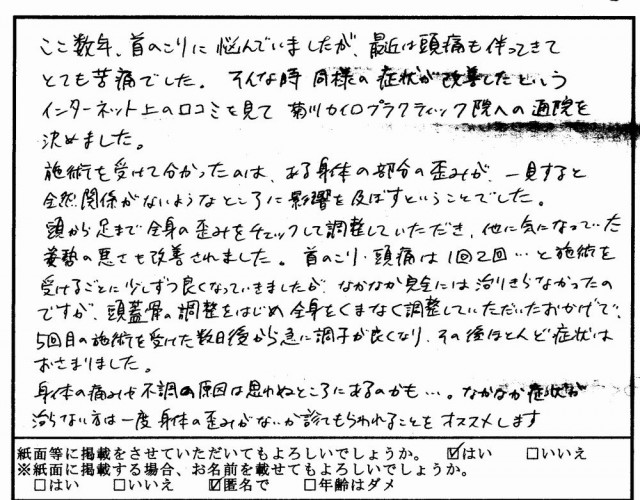 ここ数年、首のこりに悩んでいましたが、最近は頭痛も伴ってきて
とても苦痛でした。そんな時同様の症状が改善したという
インターネット上の口コミを見て菊川カイロプラクティック院への通院を
決めました。
施術を受けて分かったのは、ある身体の部分の歪みが、一見すると
全然関係がないようなところに影響を及ぼすということでした。
頭から足まで全身の歪みをチェックして調整していただき、他に気になっていた
姿勢の悪さも改善されました。首のこり・頭痛は1回2回…と施術を
受けるごとに少しずつ良くなっていきましたが、なかなか完全には治りきらなかったの
ですが、頭蓋骨の調整をはじめ全身をくまなく調整していただいたおかげで、
5回目の施術を受けた数日後から急に調子が良くなり、その後ほとんど症状は
おさまりました。
身体の痛みや不調の原因は思わぬところにあるのかも…。なかなか症状が
治らない方は一度身体の歪みがないか診てもらわれることをオススメします
紙面等に掲載をさせていただいてもよろしいでしょうか。 ☑はい □いいえ
※紙面に掲載する場合、お名前を載せてもよろしいでしょうか。
□はい □いいえ ☑匿名で □年齢はダメ